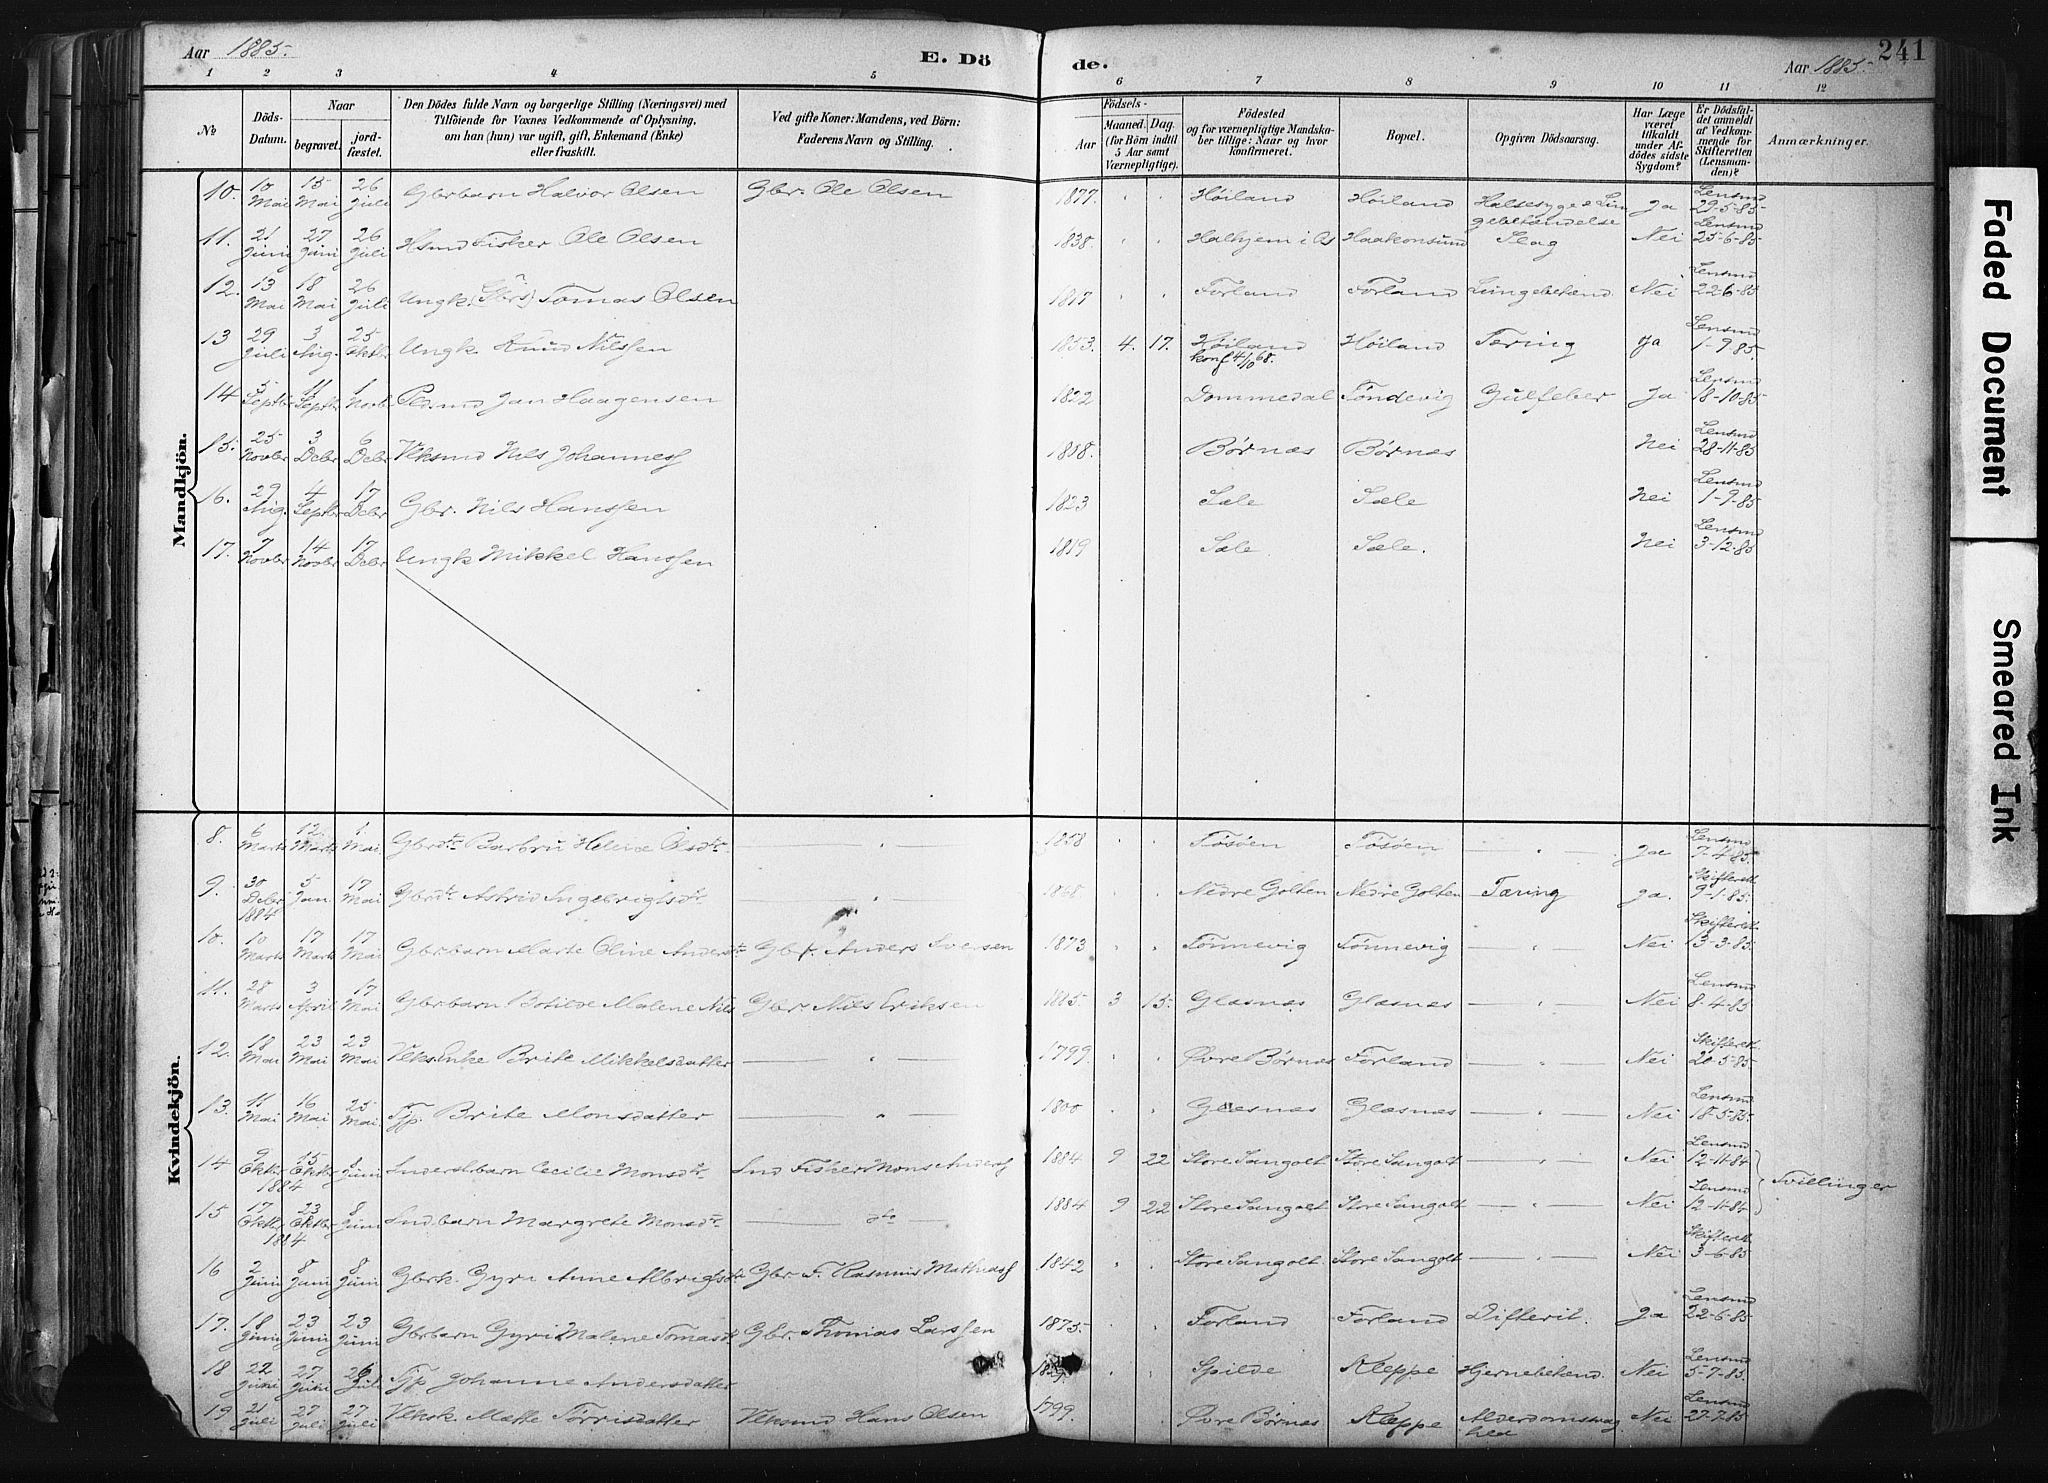 Aar 1885. E. Dö de. Aar 1885. 241
1 2 3 4 5 6 7 8 9 10 11 12
№ Döds-Datum. Naar begravet. jord-fæstet. Den Dödes fulde Navn og borgerlige Stilling (Næringsvei) med Tilföiende for Voxnes Vedkommende af Oplysning, om han (hun) var ugift, gift, Enkemand (Enke) eller fraskilt. Ved gifte Koner: Mandens, ved Börn: Faderens Navn og Stilling. Födsels- Aar Maaned. Dag. (for Börn indtil 5 Aar samt Værnepligtige). Födested og for værnepligtige Mandska-ber tillige: Naar og hvor Konfirmeret. Bopæl. Opgiven Dödsaarsag. Har Læge været tilkaldt under Af-dödes sidste Sygdom? Er Dödsfal-det anmeldt af Vedkom-mende for Skifteretten (Lensman-den)? Anmærkninger.
Mandkjön.
10. 10 Mai 15 Mai 26 Juli Gbrbarn Halvor Olsen Gbr. Ole Olsen 1877. " " Høiland Høiland Halsesyge & Lungebetændelse Ja Lensmd 29-5-85.
11. 21 Juni 27 Juni 26 Juli Hsmd Fisker Ole Olsen 1838. " " Halhjem i Os Haakonsund Slag Nei Lensmd 25-6-85
12. 13 Mai 18 Mai 26 Juli Ungk. Tomas Olsen 1817 " " Forland Forland Lungebetænd. Nei Lensmd 22-6-85
13 29 Juli 3 Aug. 25 Oktbr Ungk Knud Nilssen 1853. 4. 17. Høiland konf 4/10 68. Høiland Tæring Ja Lensmd 1-9-85.
14 5 Septbr 11 Septbr 1 Novbr Pedsmd Jan Haagensen 1822 Dommedal Tøndevig Gulfeber Ja Lensmd 18-10-85
15. 25 Novbr 3 Debr 6 Debr Vlksmd Nils Johanness 1808. Børnæs Børnæs Nei Lensmd 28-11-85
16. 29 Aug. 4 Septbr 17 Debr Gbr. Nils Hanssen 1823 Sæle Sæle Nei Lensmd 1-9-85
17. 7 Novbr 14 Novbr 17 Debr Ungk Mikkel Hanssen 1819 Sæle Sæle. Nei Lensmd 3-12-85
Kvindekjön.
8. 6 Marts 12 Marts 1. Mai Gbrdtr Barbru Helene Olsdtr — " — 1858 " " Tøsøen Tøsøen — " — Ja Lensmd 7-4-85.
9. 30 Debr 1884 5 Jan. 17 Mai Gbrdtr Astrid Ingebrigtsdtr " 1868 " " Nedre Golten Nedre Golten Tæring Ja. Skifterett. 9-1-85.
10. 10 Marts 17 Marts 17 Mai Gbrbarn Marte Oline Andersdtr Gbr. Anders Iversen 1873 " " Tønnevig Tønnevig — " — Nei Skifteret. 13-3-85.
11. 28 Marts 3 April 17 Mai Gbrbarn Botilde Malene Nils Gbr. Nils Eriksen 1885. 3 15. Glæsnæs Glæsnæs — " — Nei Lensmd 8-4-85
12. 18 Mai 23 Mai 23 Mai Vlks. Enke Brite Mikkelsdatter — " — 1799. " " Øvre Børnæs Forland — " — Nei Skifteret. 20-5-85
13. 11 Mai 16 Mai 25 Mai Tjp. Brite Monsdatter — " — 1800 " " Glæsnæs Glæsnæs — " — Nei Lensmd 18-5-85.
14 9 Oktbr 1884 15 Oktbr 8 Juni Inderstbarn Cecilie Monsdtr Ind Fisker Mons Anderss 1884 9 22 Store Sangolt Store Sangolt — " — Nei Lensmd 12-11-84
Tvillinger
15 17 Oktbr 1884 23 Oktbr 8 Juni Ind.barn Margrete Monsdtr. — dto — 1884 9 22 Store Sangolt Store Sangolt — " — Nei Lensmd 12-11-84
16 2 Juni 8 Juni 8 Juni Gbrk. Gyri Anne Albrigtsdtr Gbr. F. Rasmus Mathiass 1842 " " Store Sangolt. Store Sangolt — " — Nei Skifteret. 3-6-85
17. 18 Juni 23 Juni 23 Juni Gbrbarn Gyri Malene Tomasdtr Gbr. Thomas Larssen 1875. " " Forland Forland Difterit. Ja Lensmd 22-6-85
18 22 Juni 27 Juni 26 Juli Tjp Johanne Andersdatter " " Spilde Kleppe Hjernebetænd. Nei Lensmd 5-7-85.
19 21 Juli 27 Juli 27 Juli Vlksk. Mætte Tørrisdatter Vlksmd Hans Olsen 1799. Øvre Børnæs Kleppe Alderdomssvaghed Nei Lensmd 27-7-85
Faded Document
Smeared Ink